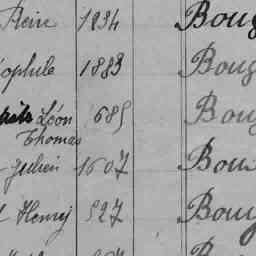 Rein 1234 Boug
ophile 1883 Boug
Léon 685 Boug
Thomas
Julien 1607 Bou
Henry 527 Boug